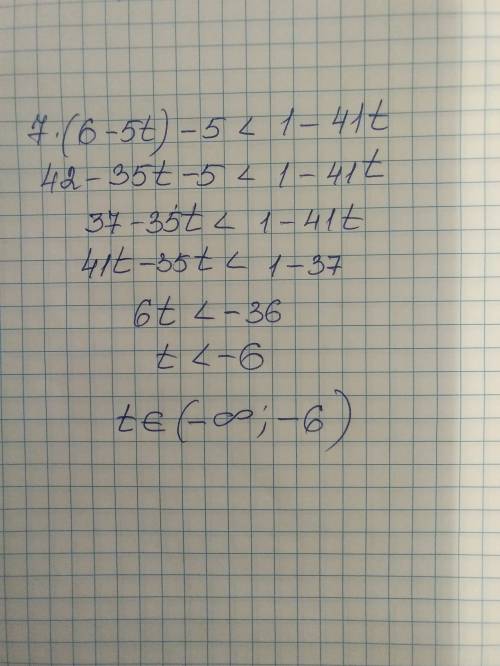 7·(6-5t)-5 < 1-41t
42-35t-5 < 1-41t
37-35t < 1-41t
41t-35t < 1-37
6t < -36
t < -6
t∈(-∞;-6)